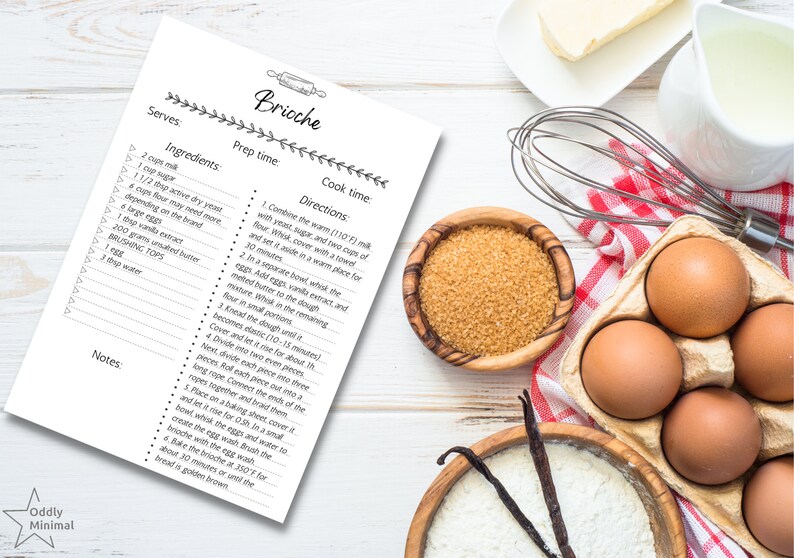 Brioche
Serves:
Prep time:
Cook time:
Ingredients:
2 cups milk
1 cup sugar
1 1/2 tbsp active dry yeast
6 cups flour may need more,
depending on the brand
6 large eggs
1 tbsp vanilla extract
200 grams unsalted butter
BRUSHING TOPS
1 egg
3 tbsp water
Notes:
Directions:
1. Combine the warm (110°F) milk
with yeast, sugar, and two cups of
flour. Whisk, cover with a towel
and set it aside in a warm place for
30 minutes.
2. In a separate bowl, whisk the
eggs. Add eggs, vanilla extract, and
melted butter to the dough
mixture. Whisk in the remaining
flour in small portions.
3. Knead the dough until it
becomes elastic (10-15 minutes).
Cover and let it rise for about 1h.
4. Divide into two even pieces.
Next, divide each piece into three
pieces. Roll each piece out into a
long rope. Connect the ends of the
ropes together and braid them.
5. Place on a baking sheet, cover it,
and let it rise for 0.5h. In a small
bowl, whisk the eggs and water to
create the egg wash. Brush the
brioche with the egg wash.
6. Bake the brioche at 350°F for
about 30 minutes or until the
bread is golden brown.
Oddly
Minimal